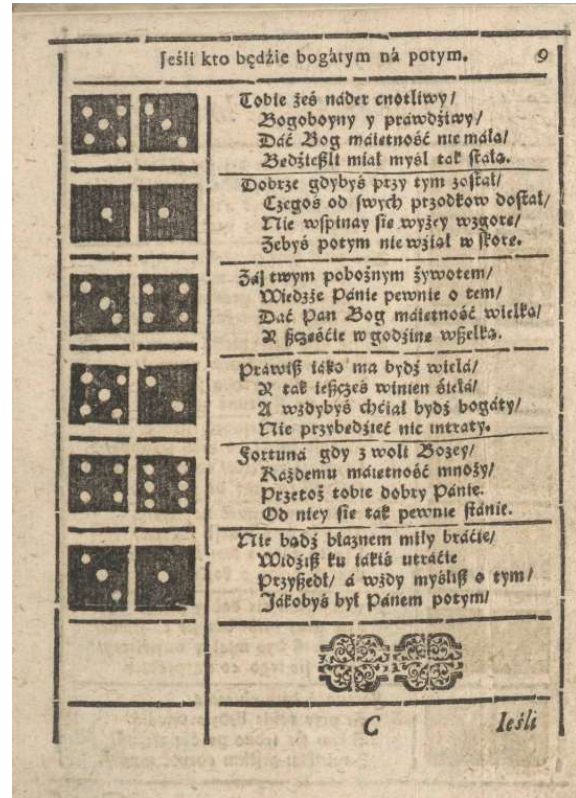 Jeśli kto będźie bogátym ná potym. 9
Tobie żeś náder cnotliwy/
Bogoboyny y prawdźiwy/
Dáć Bog máiętność nie máła/
Będźießli miał myśl ták stała.
Dobrze gdybyś przy tym został/
Czegoś od swych przodkow dostał/
Nie wspinay sie wyżey wzgorę/
Żebyś potym nie wźiął w skorę.
Zá twym pobożnym żywotem/
Wiedzże Pánie pewnie o tem/
Dáć Pan Bog máiętność wielką/
Y ßczęśćie w godźinę wßelką.
Práwiß iáko ma bydź wielá/
Y ták ießcześ winien śiełá/
A wżdybyś chćiał bydź bogáty/
Nie przybędźieć nic intraty.
Fortuná gdy z woli Bożey/
Káżdemu máiętność mnoży/
Przetoż tobie dobry Pánie.
Od niey sie ták pewnie stánie.
Nie bądź błaznem miły bráćie/
Widźiß ku iákiś utráćie
Przyßedł/ á wżdy myśliß o tym/
Jákobyś był Pánem potym/
C Ieśli